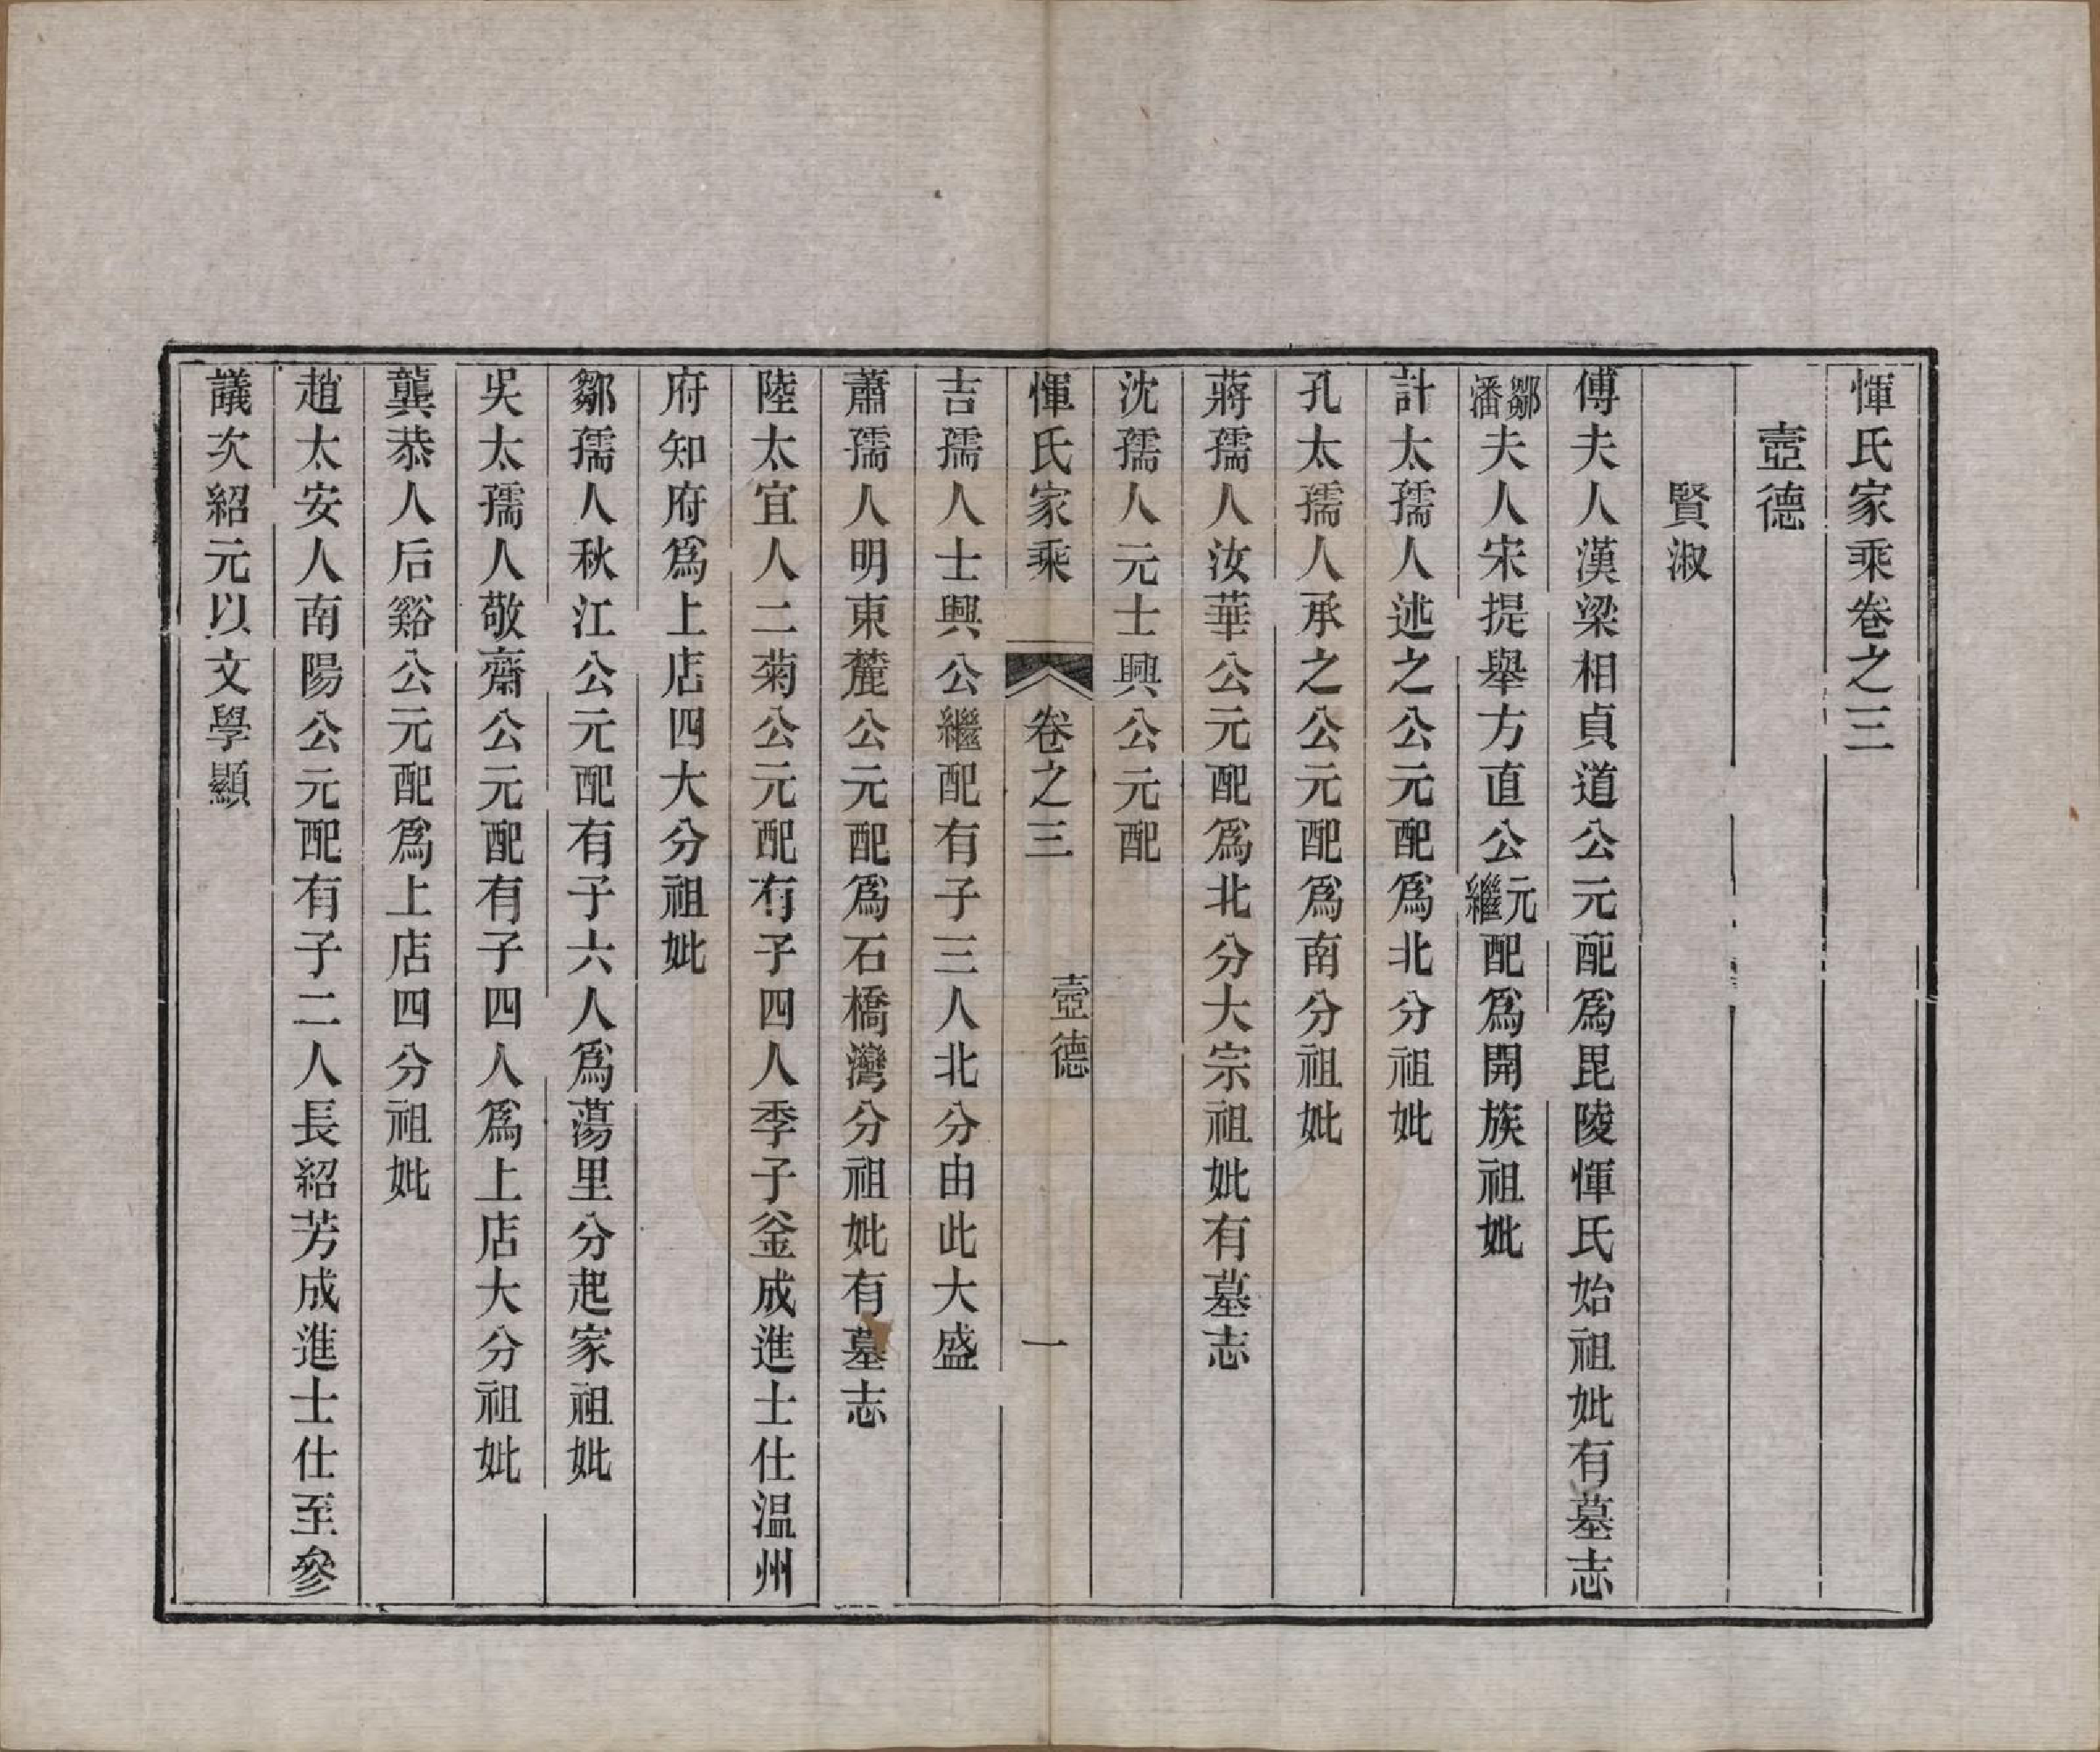 惲氏家乘卷之三
壼德
賢淑
傅夫人漢梁相貞道公元配爲毘陵惲氏始祖妣有墓志
鄒潘夫人宋提舉方直公元繼配爲開族祖妣
計太孺人述之公元配爲北分祖妣
孔太孺人承之公元配爲南分祖妣
蔣孺人汝華公元配爲北分大宗祖妣有墓志
沈孺人元士興公元配
惲氏家乘 卷之三 壼德 一
吉孺人士興公繼配有子三人北分由此大盛
蕭孺人明東麓公元配爲石橋灣分祖妣有墓志
陸太宜人二菊公元配有子四人季子釜成進士仕温州
府知府爲上店四大分祖妣
鄒孺人秋江公元配有子六人爲蕩里分起家祖妣
吳太孺人敬齋公元配有子四人爲上店大分祖妣
龔恭人后谿公元配爲上店四分祖妣
趙太安人南陽公元配有子二人長紹芳成進士仕至參
議次紹元以文學顯